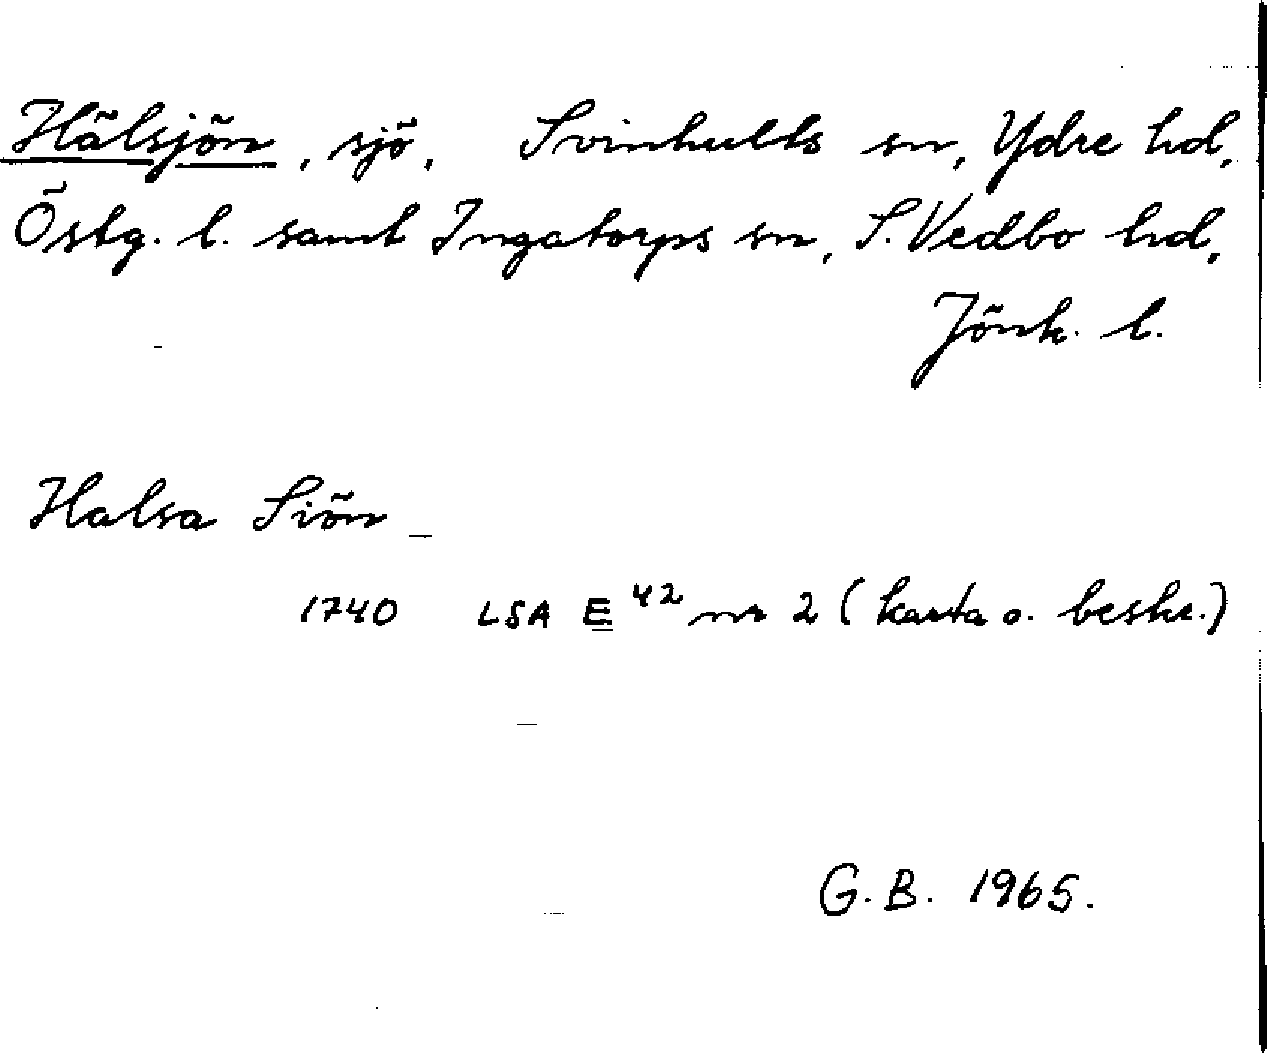 Hälsjön, sjö, Svinhults sn, Ydre hd,
Östg. l. samt Ingatorps sn, S. Vedbo hd,
Jönk. l.
Halsa Siön
1740 LSA E 42 nr 2 (karta o. beskr.)
G. B. 1965.